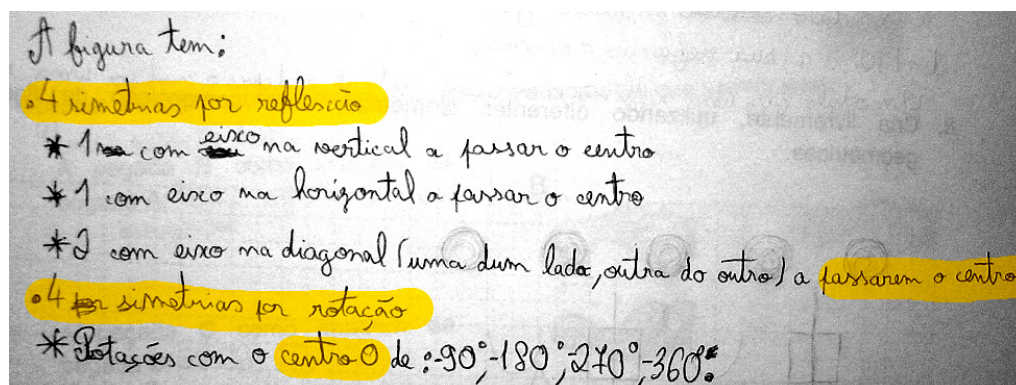 A figura tem:
. 4 simetrias por reflescião
* 1 com eixo na vertical a passar o centro
* 1 com eixo na horizontal a passar o centro
* 2 com eixo na diagonal (uma dum lado, outra do outro) a passarem o centro
. 4 simetrias por rotação
* Rotações com o centro O de: -90°, -180°, -270°, -360°.